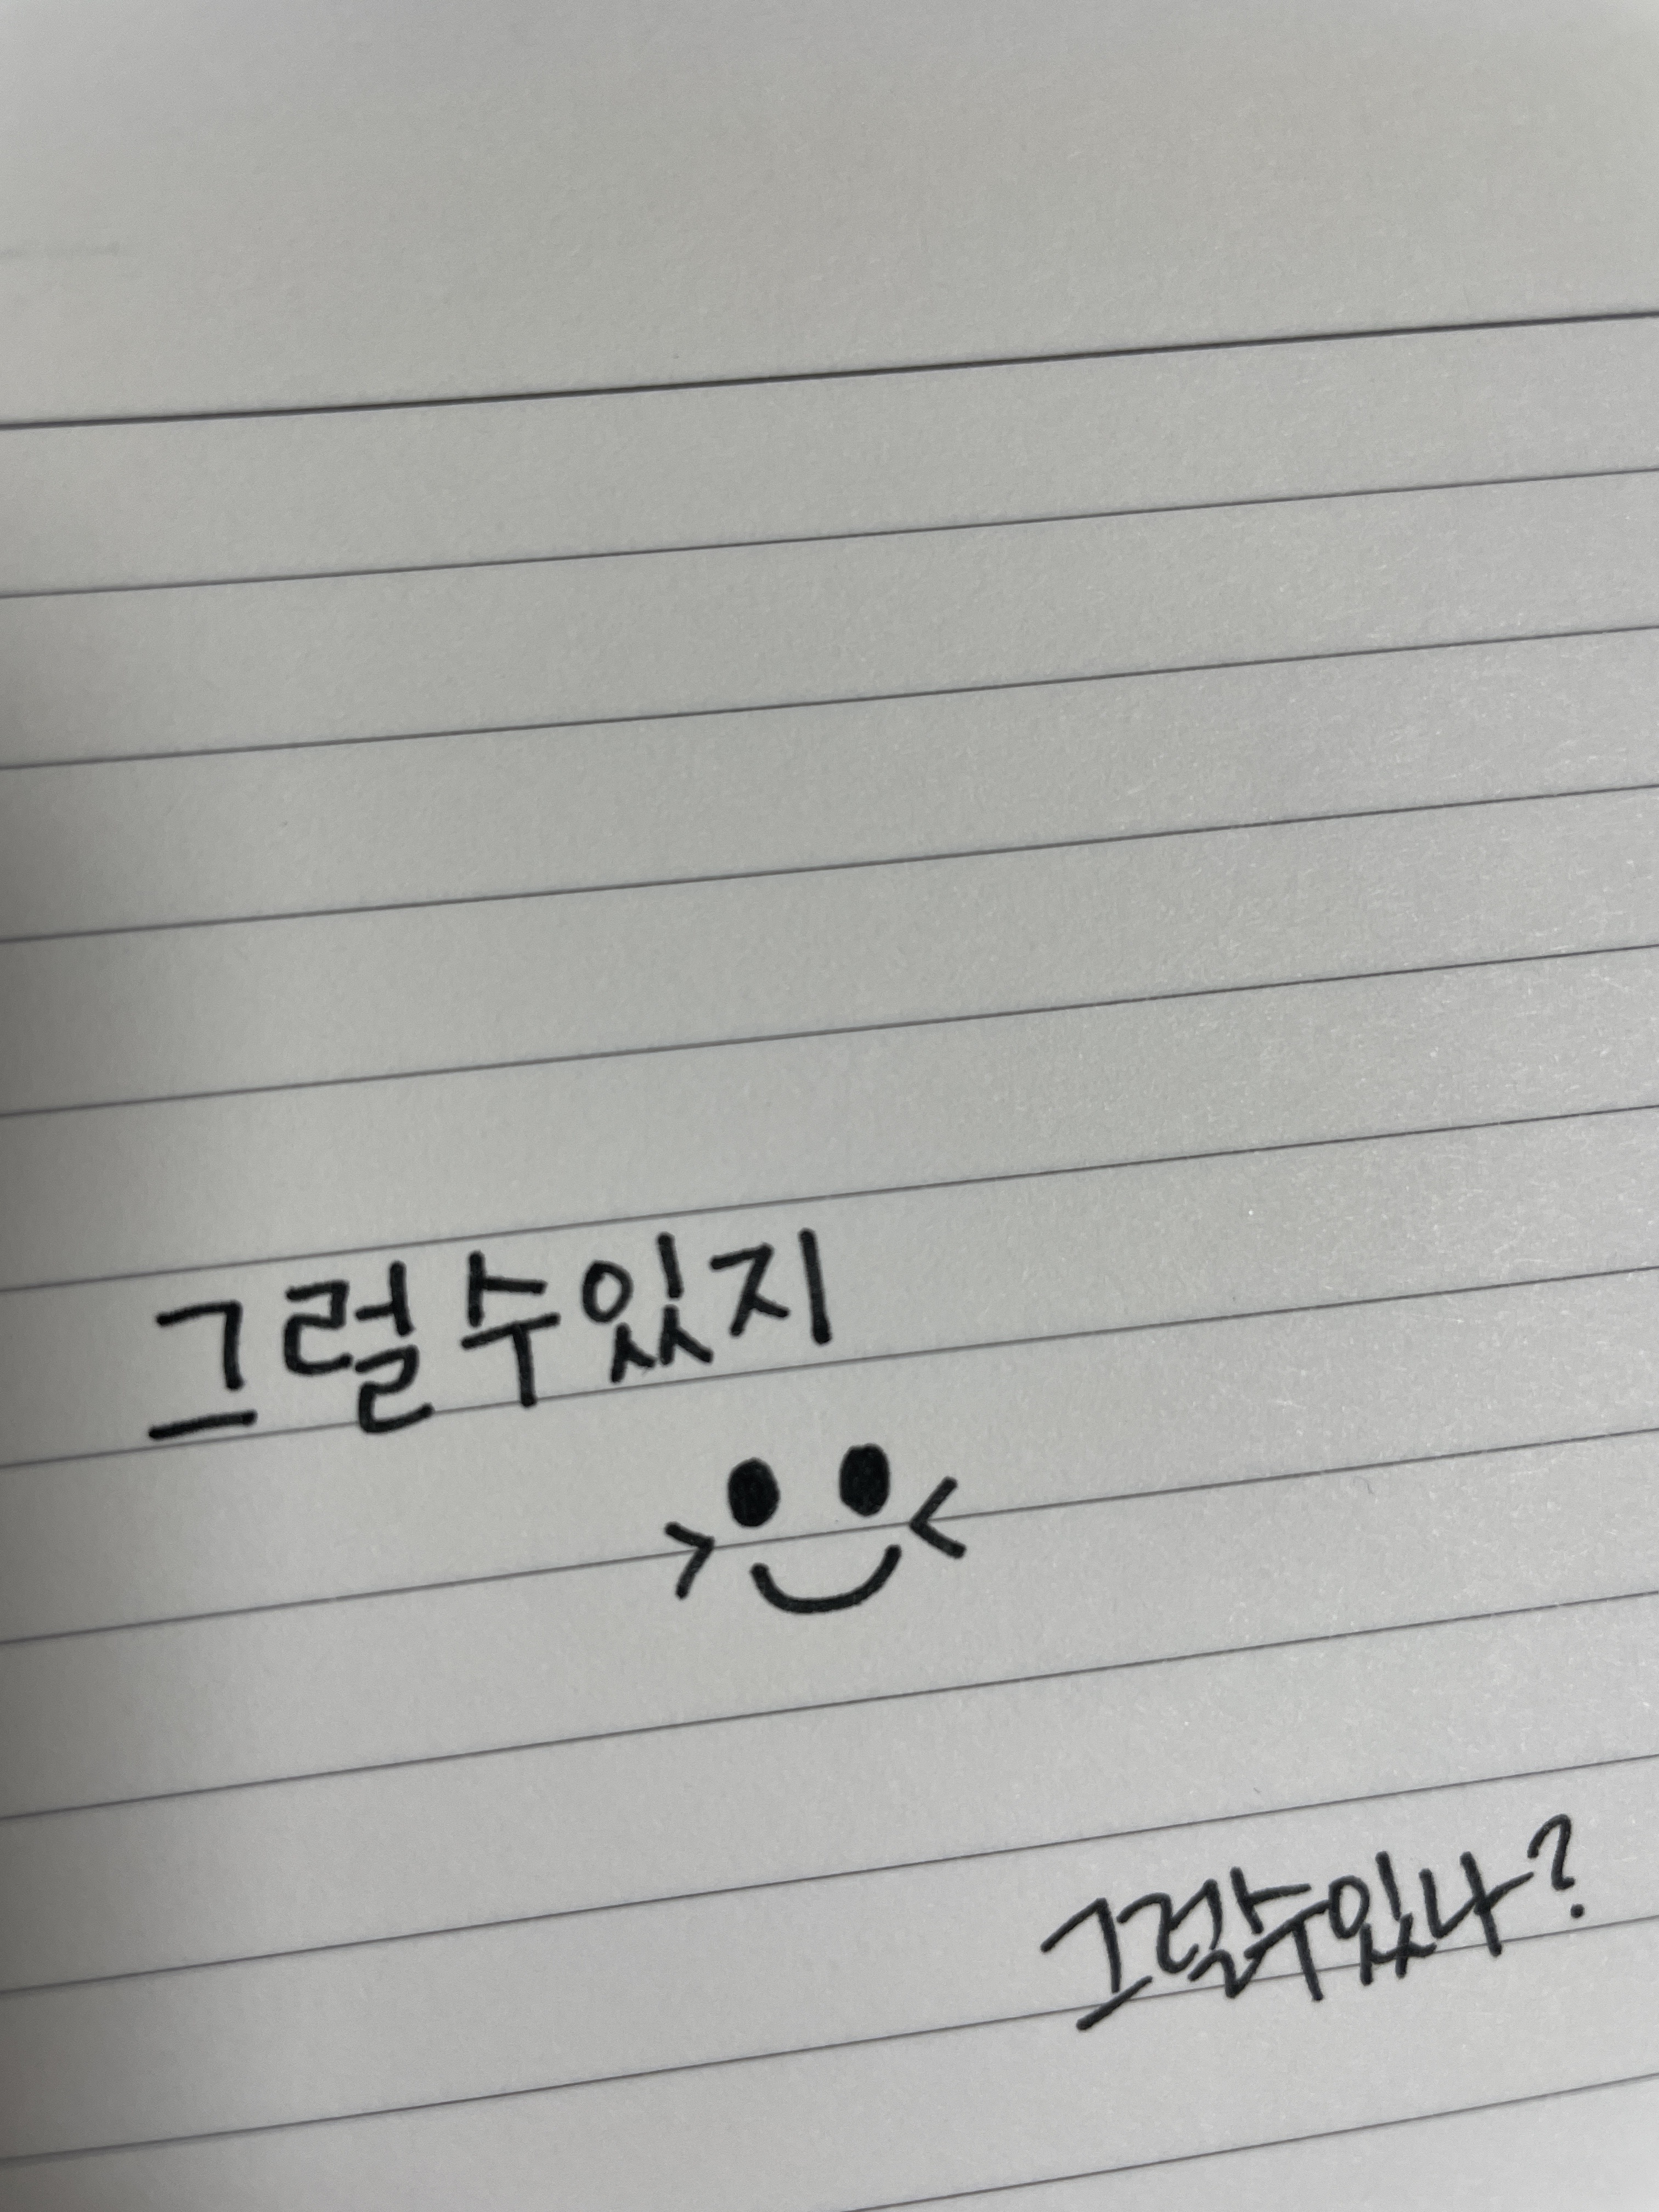 그럴수있지
그럴수있나?